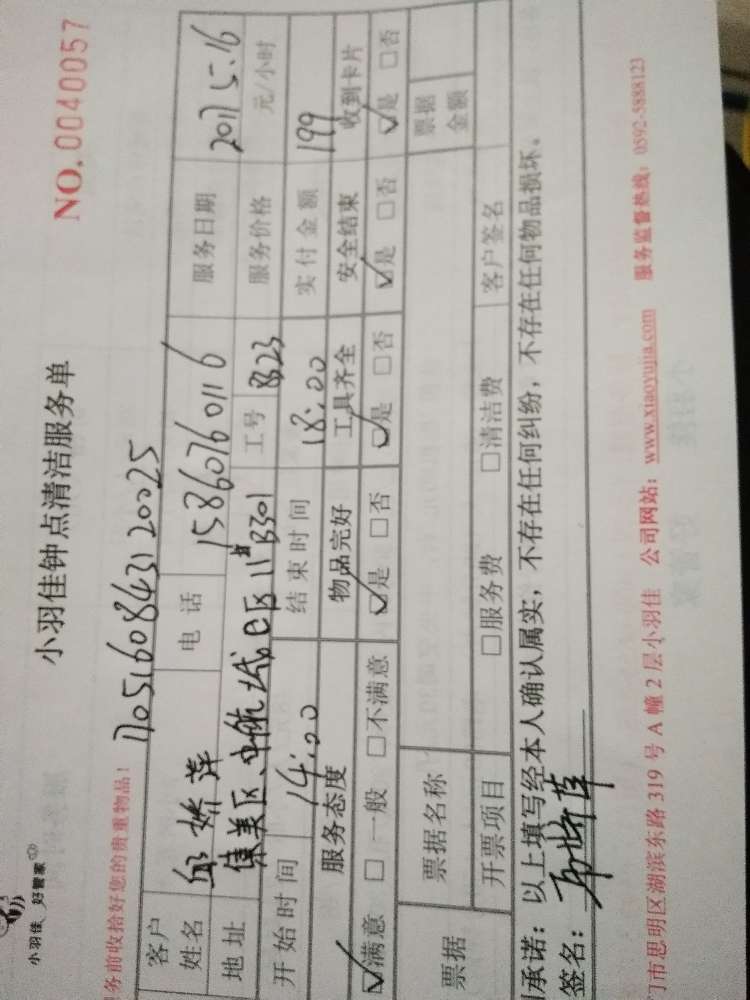 小羽佳 好管家
小羽佳钟点清洁服务单
NO.0040057
务前收拾好您的贵重物品！
17051608431 20025
客户姓名 邱娇萍 电话 15860760116 服务日期 2017.5.16
地址 集美区、中航城E区11#B301 工号 8823 服务价格 元/小时
开始时间 14:00 结束时间 18:00 实付金额 199
服务态度 物品完好 工具齐全 安全结束 收到卡片
☑满意 □一般 □不满意 ☑是 □否 ☑是 □否 ☑是 □否 ☑是 □否
票据 票据名称 票据金额
开票项目 □服务费 □清洁费 客户签名
承诺：以上填写经本人确认属实，不存在任何纠纷，不存在任何物品损坏。
签名：
门市思明区湖滨东路319号A幢2层小羽佳 公司网站：www.xiaoyujia.com 服务监督热线：0592-5888123